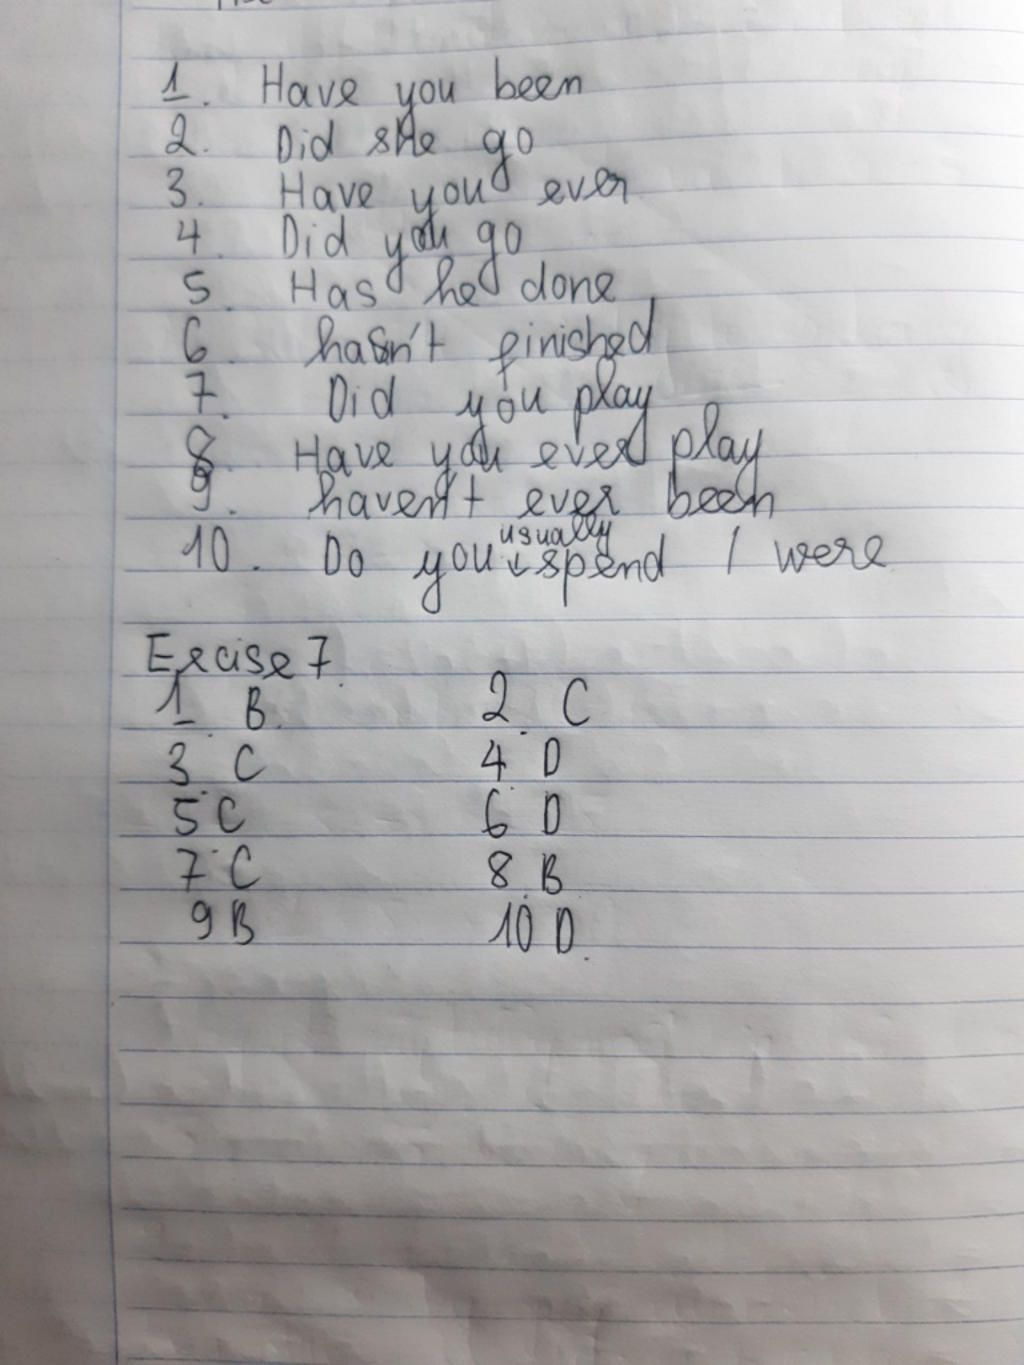 1. Have you been
2. Did she go
3. Have you ever
4. Did you go
5. Has he done
6. hasn't finished
7. Did you play
8. Have you ever play
9. haven't ever been
10. Do you usually spend / were
Excise 7.
1. B. 2. C
3. C 4. D
5. C 6. D
7. C 8. B
9 B 10 D.